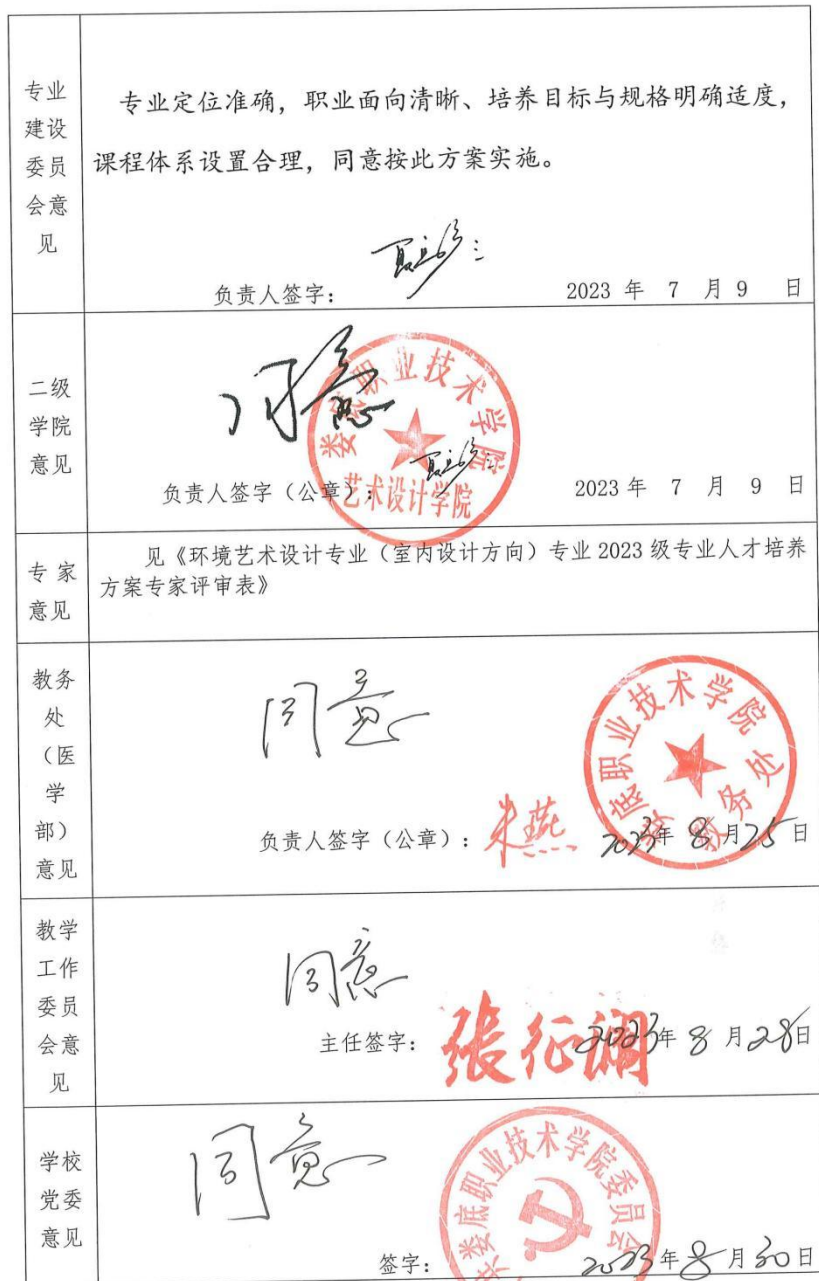 专业
建设
委员
会意
见
专业定位准确，职业面向清晰、培养目标与规格明确适度，
课程体系设置合理，同意按此方案实施。
负责人签字：
2023 年 7 月 9 日
二级
学院
意见
同意
娄底职业技术学院
艺术设计学院
负责人签字（公章）：
2023 年 7 月 9 日
专家
意见
见《环境艺术设计专业（室内设计方向）专业 2023 级专业人才培养
方案专家评审表》
教务
处
（医
学
部）
意见
同意
娄底职业技术学院
教务处
负责人签字（公章）：朱燕 2023年 8 月25日
教学
工作
委员
会意
见
同意
主任签字：張征澜 2023年 8 月28日
学校
党委
意见
同意
共娄底职业技术学院委员会
签字：
2023年 8 月30日